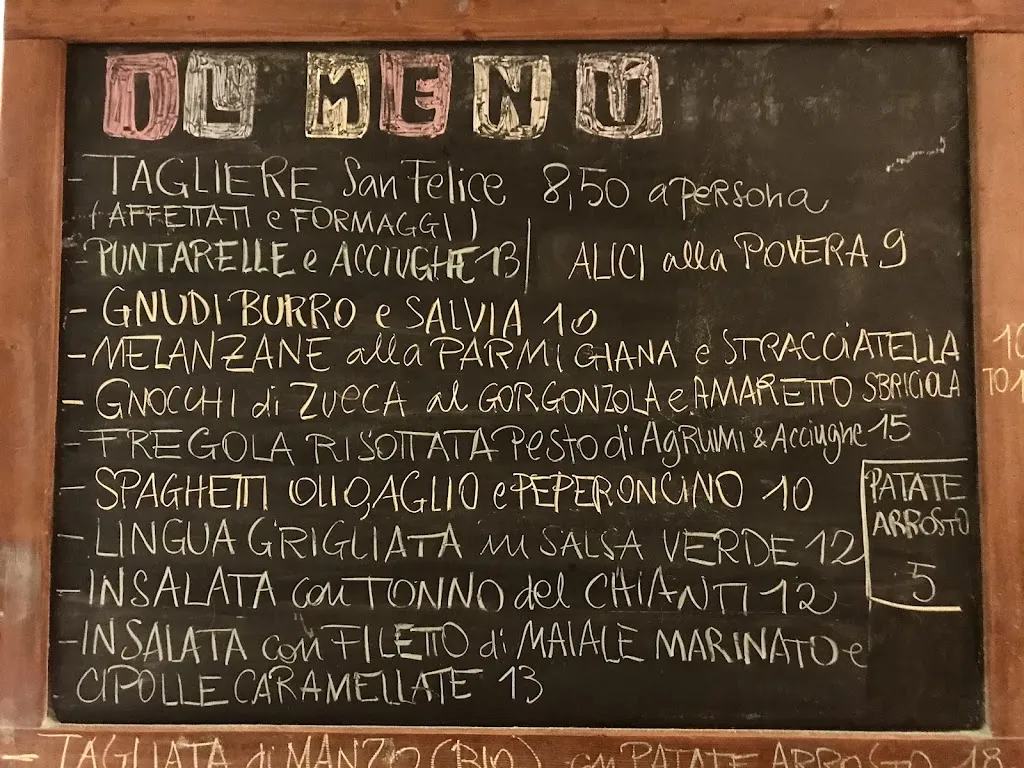 IL MENÚ
- TAGLIERE San Felice 8,50 a persona
(AFFETTATI e FORMAGGI)
- PUNTARELLE e ACCIUGHE 13 | ALICI alla POVERA 9
- GNUDI BURRO e SALVIA 10
- MELANZANE alla PARMIGIANA e STRACCIATELLA 10
- GNOCCHI di ZUCCA al GORGONZOLA e AMARETTO SBRICIOLATO 1
- FREGOLA RISOTTATA Pesto di AGRUMI & Acciughe 15
- SPAGHETTI OLIO, AGLIO e PEPERONCINO 10
PATATE
ARROSTO
5
- LINGUA GRIGLIATA in SALSA VERDE 12
- INSALATA con TONNO del CHIANTI 12
- INSALATA con FILETTO di MAIALE MARINATO e
CIPOLLE CARAMELLATE 13
- TAGLIATA di MANZO (BIO) con PATATE ARROSTO 18